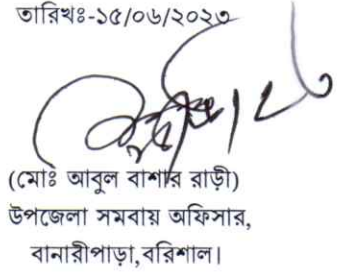 তারিখঃ-১৫/০৬/২০২৩
(মোঃ আবুল বাশার রাড়ী)
উপজেলা সমবায় অফিসার,
বানারীপাড়া,বরিশাল।